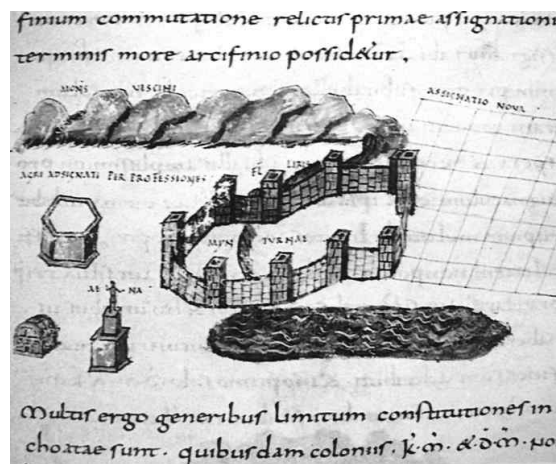 finium commutatione relictis primae assignationi
terminis more arcifinio possidetur.
MONS VESCINI
ASSIGNATIO NOUA
FL LIRIS
AGRI ADSIGNATI PER PROFESSIONES
MIN TURNAE
Multis ergo generibus limitum constitutiones in
choatae sunt. quibusdam coloniis. k̄. m̄. & d̄. m̄. no